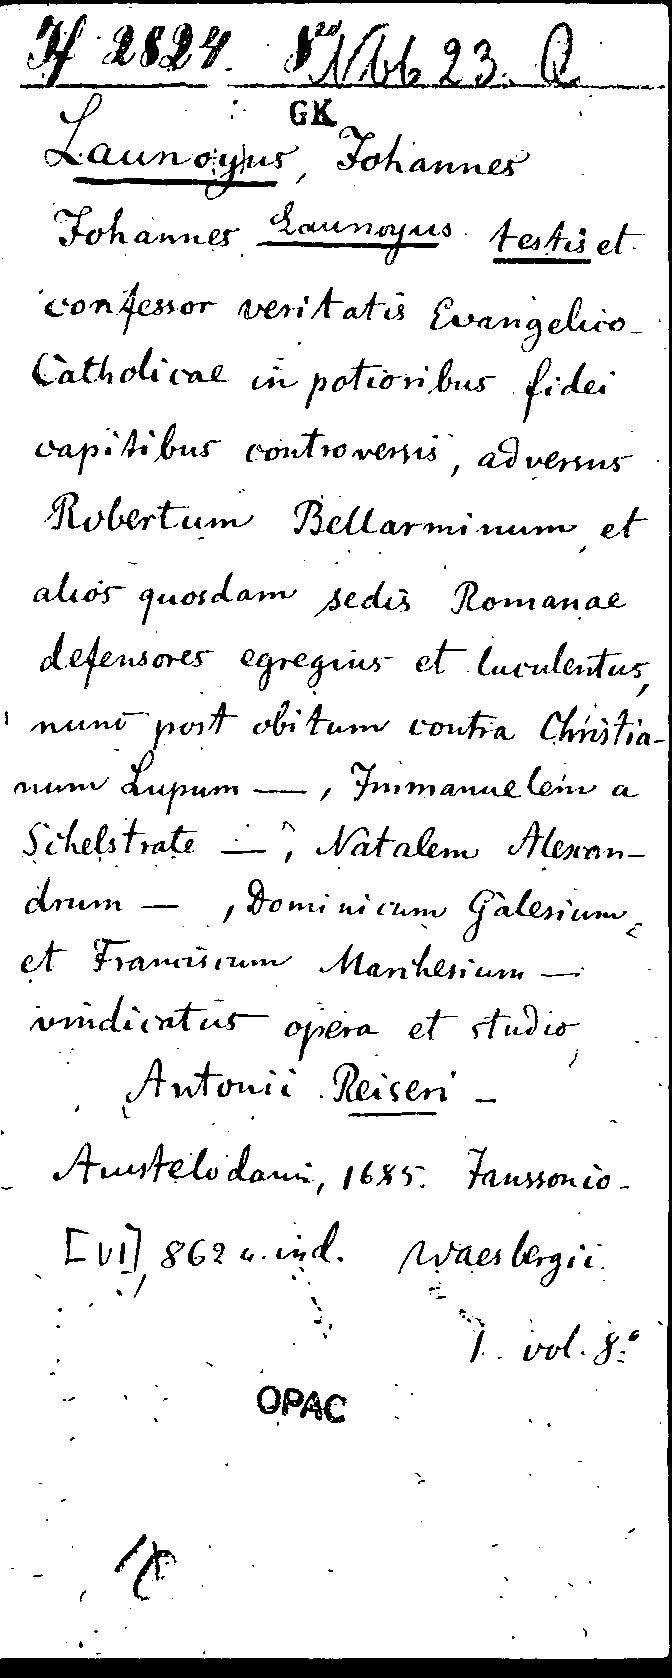 If 2824. 8vo Nbb 23. Q
GK
Launoyus, Johannes
Johannes Launoyus testis et
confessor veritatis Evangelico-
Catholicae in potioribus fidei
capitibus controversis, adversus
Robertum Bellarminum et
alios quosdam sedis Romanae
defensores egregius et luculentus,
nunc post obitum contra Christia-
num Lupum —, Immanuelem a
Schelstrate —, Natalem Alexan-
drum —, Dominicum Galesium,
et Franciscum Marchesium —
vindicatus opera et studio
Antonii Reiseri —
Amstelodami, 1685. Janssonio-
[VI], 862 u. ind. Waesbergii.
1. vol. 8°
OPAC